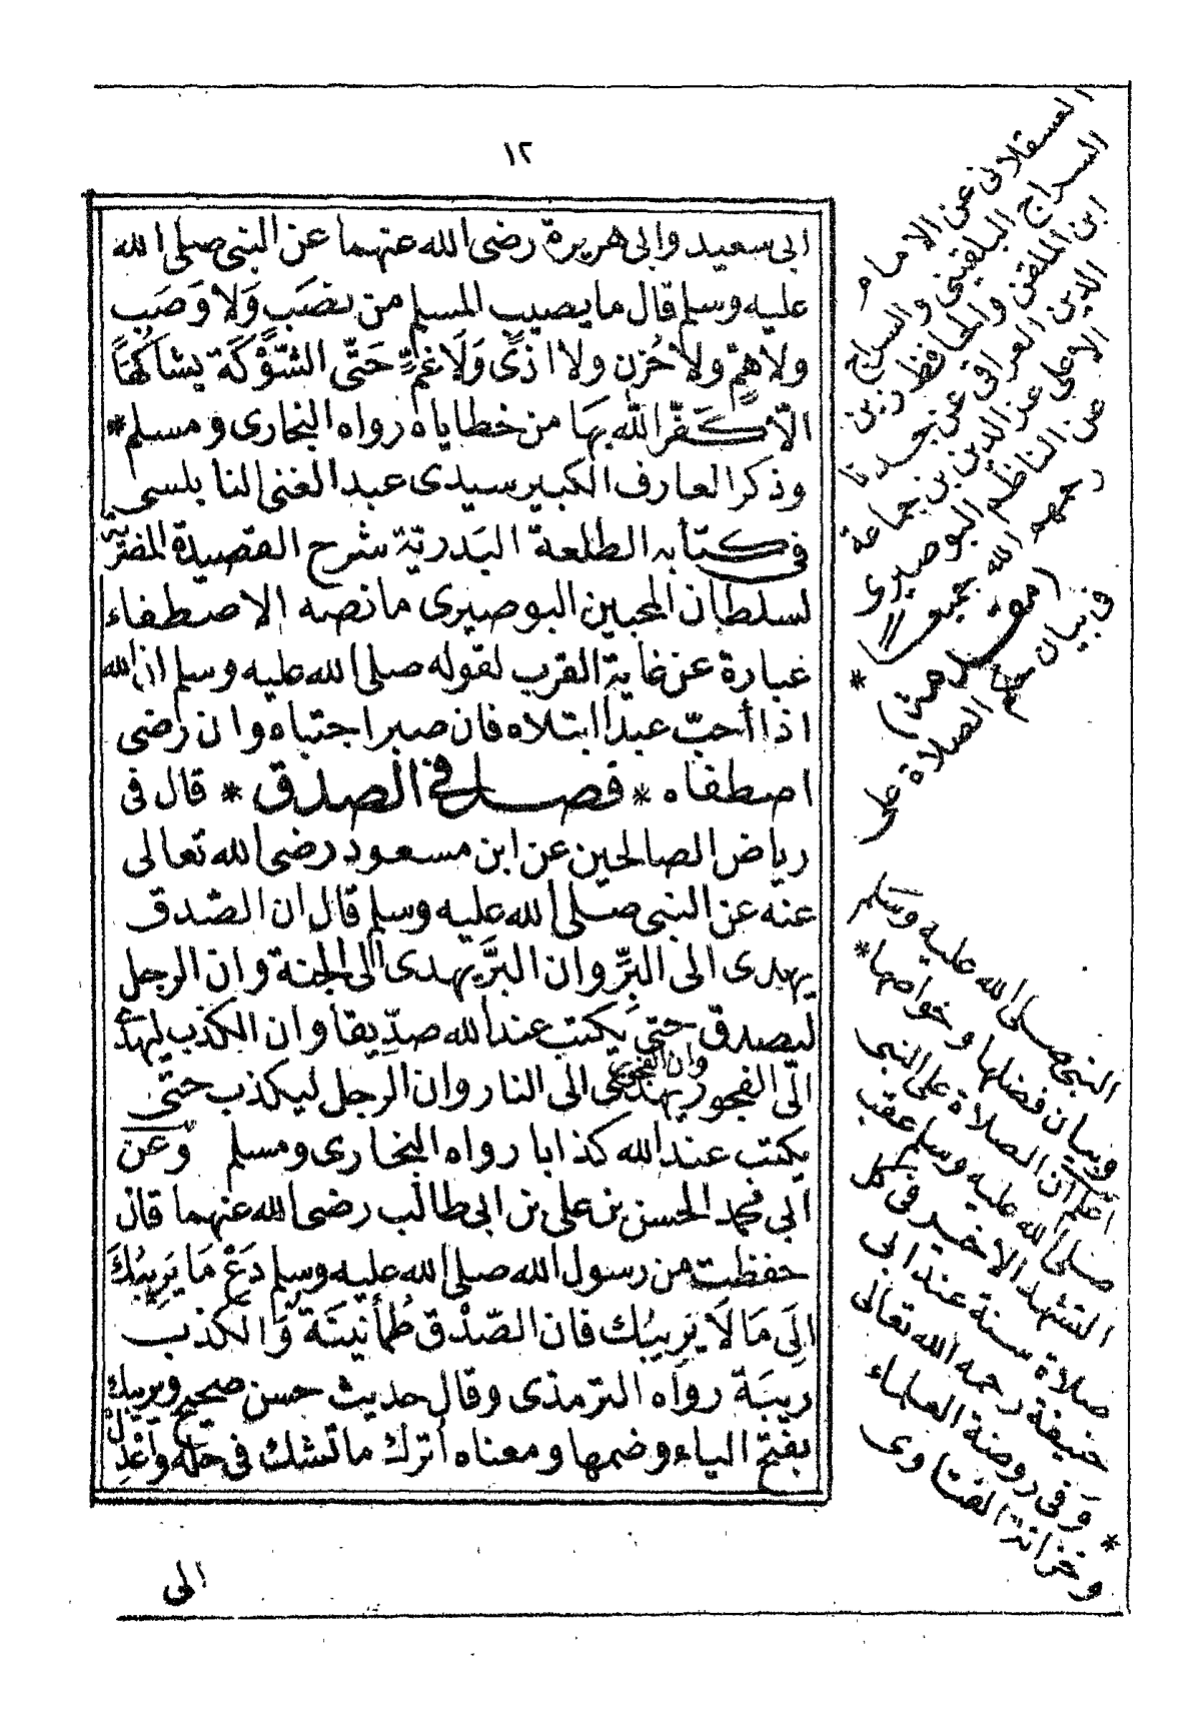 ١٢
ابى سعيد وابى هريرة رضى الله عنهما عن النبى صلى الله
عليه وسلم قال ما يصيب المسلم من نصَب وَلا وَصَب
ولا همٍّ ولا حُزن ولا اذىً وَلَا غمٍّ حَتّى الشّوْكَة يشاكُهَا
الّا كَفّر الله بهَا من خطاياه رواه البخارى ومسلم *
وذكر العارف الكبير سيدى عبد الغنى النابلسى
فى كتابه الطلعة البَدرية شرح القصيدة المضرية
لسلطان المحبين البوصيرى ما نصه الاصطفاء
عبارة عن غاية القرب لقوله صلى الله عليه وسلم ان الله
اذا أحبّ عبدا ابتلاه فان صبر اجتباه وان رضى
اصطفاه * فصل فى الصدق * قال فى
رياض الصالحين عن ابن مسعود رضى الله تعالى
عنه عن النبى صلى الله عليه وسلم قال ان الصّدق
يهدى الى البِرِّ وان البرَّ يهدى الى الجنة وان الرجل
ليصدق حتى يكتب عند الله صدِّيقا وان الكذب ليهدى
الى الفجور وان الفجور يهدى الى النار وان الرجل ليكذب حتى
يكتب عند الله كذابا رواه البخارى ومسلم وعن
ابى محمد الحسن بن على بن ابى طالب رضى الله عنهما قال
حفظت من رسول الله صلى الله عليه وسلم دَعْ مَا يَرِيبُكَ
الِى مَا لَا يَرِيبُك فان الصّدْق طُمأنينَة وَالكذب
ريبَة رواه الترمذى وقال حديث حسن صحيح ويريبك
بفتح الياء وضمها ومعناه أترك ما تشك فى حله وَاعْدِلْ
الى
العسقلانى عن الامام
السراج البلقينى والسراج
ابن الملقن والحافظ زين
الدين العراقى عن
الاعلى عز الدين بن جماعة
عن الناظم البوصيرى
رحمهم الله جميعا *
(مقدمة)
فى بيان معنى
الصلاة على
النبى صلى الله عليه وسلم
وبيان فضلها وخواصها *
أعلم ان الصلاة على النبى
صلى الله عليه وسلم عقب
التشهد الاخير فى كل
صلاة سنة عند ابى
حنيفة رحمه الله تعالى
* وفى روضة العلماء
وخزانة الفتاوى